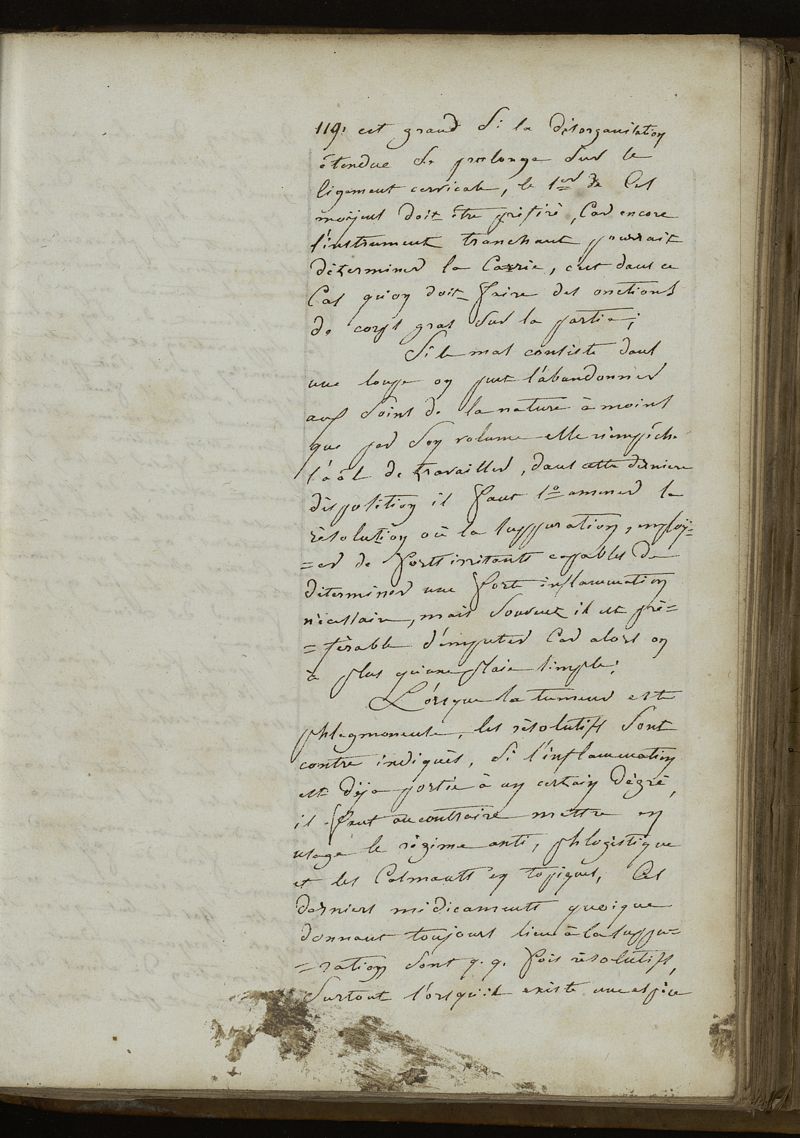 119. est grand si la désorganisation
étendue se prolonge sur le
ligament cervicale, le 1er de ces
moÿens doit être préféré, car encore
l'instrument tranchant pourrait
déterminer la Carrie, c'est dans ce
Cas qu'on doit faire des onctions
de corps gras sur la partie;
Si le mal consiste dans
une loupe on peut l'abandonner
aux soins de la nature à moins
que par son volume elle n'empêche
l'âôl de travailler, dans cette derniere
disposition il faut 1o amener la
résolution où la suppuration, emploÿ=
=er de forts irritants capables de
déterminer une forte inflammation
nécessaire, mais souvent il est pré=
=férable d'emputer car alors on
à plus qu'une plaie simple;
Lorsque la tumeur este
phlegmoneuse, les résolutifs sont
contre indiqués, si l'inflammation
est déja portée à un certain dégré,
il faut au contraire mettre en
usage le régime anti, phlogistique
et les Calmants en topiques, Ces
derniers médicaments quoique
donnant toujours lieu à la suppu=
=ration sont q.q. fois résolutifs,
surtout l'orsqu'il existe une espèce